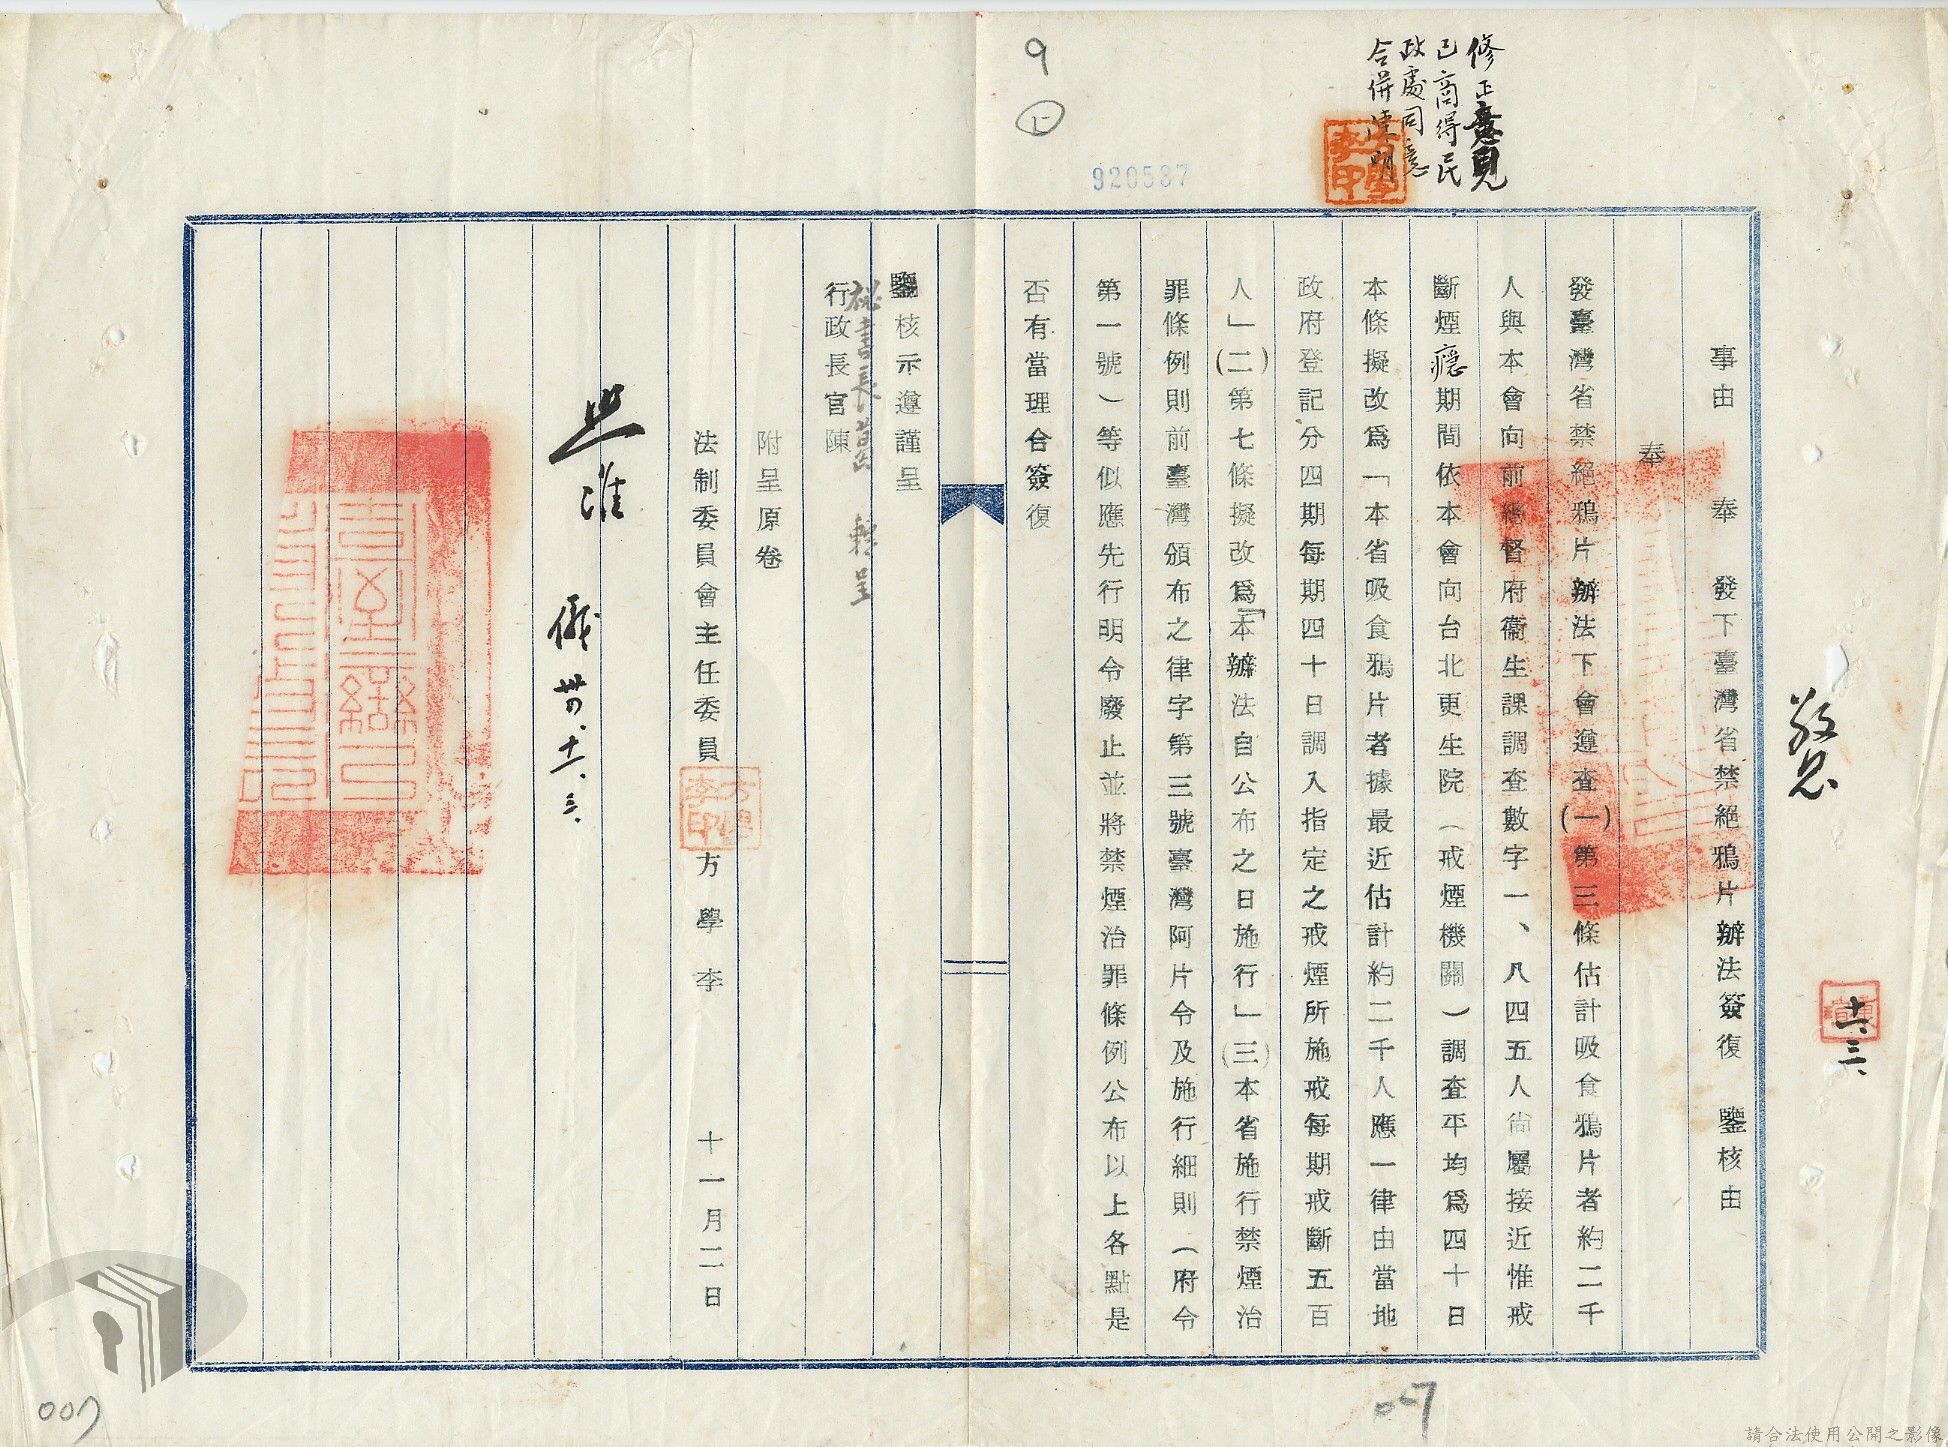 修正意見
已商得民
政處同意
合併陳明
9
920587
十一、三、
事由　奉　發下臺灣省禁絕鴉片辦法簽復　鑒核由
奉
發臺灣省禁絕鴉片辦法下會遵查(一)第三條估計吸食鴉片者約二千
人與本會向前總督府衞生課調查數字一、八四五人尙屬接近惟戒
斷煙癮期間依本會向台北更生院（戒煙機關）調查平均爲四十日
本條擬改爲「本省吸食鴉片者據最近估計約二千人應一律由當地
政府登記分四期每期四十日調入指定之戒煙所施戒每期戒斷五百
人」(二)第七條擬改爲「本辦法自公布之日施行」(三)本省施行禁煙治
罪條例則前臺灣頒布之律字第三號臺灣阿片令及施行細則（府令
第一號）等似應先行明令廢止並將禁煙治罪條例公布以上各點是
否有當理合簽復
鑒核示遵謹呈
秘書長葛　轉呈
行政長官陳
附呈原卷
法制委員會主任委員　方學李　十一月二日
方學李印
照准　儀　卅四、十一、三、
007
07
請合法使用公開之影像